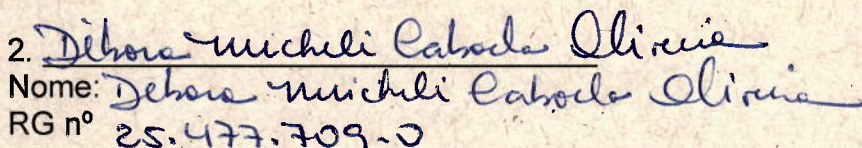 2. Débora Micheli Cabocla Oliveira
Nome: Debora Micheli Cabocla Oliveira
RG nº 25.477.709-0